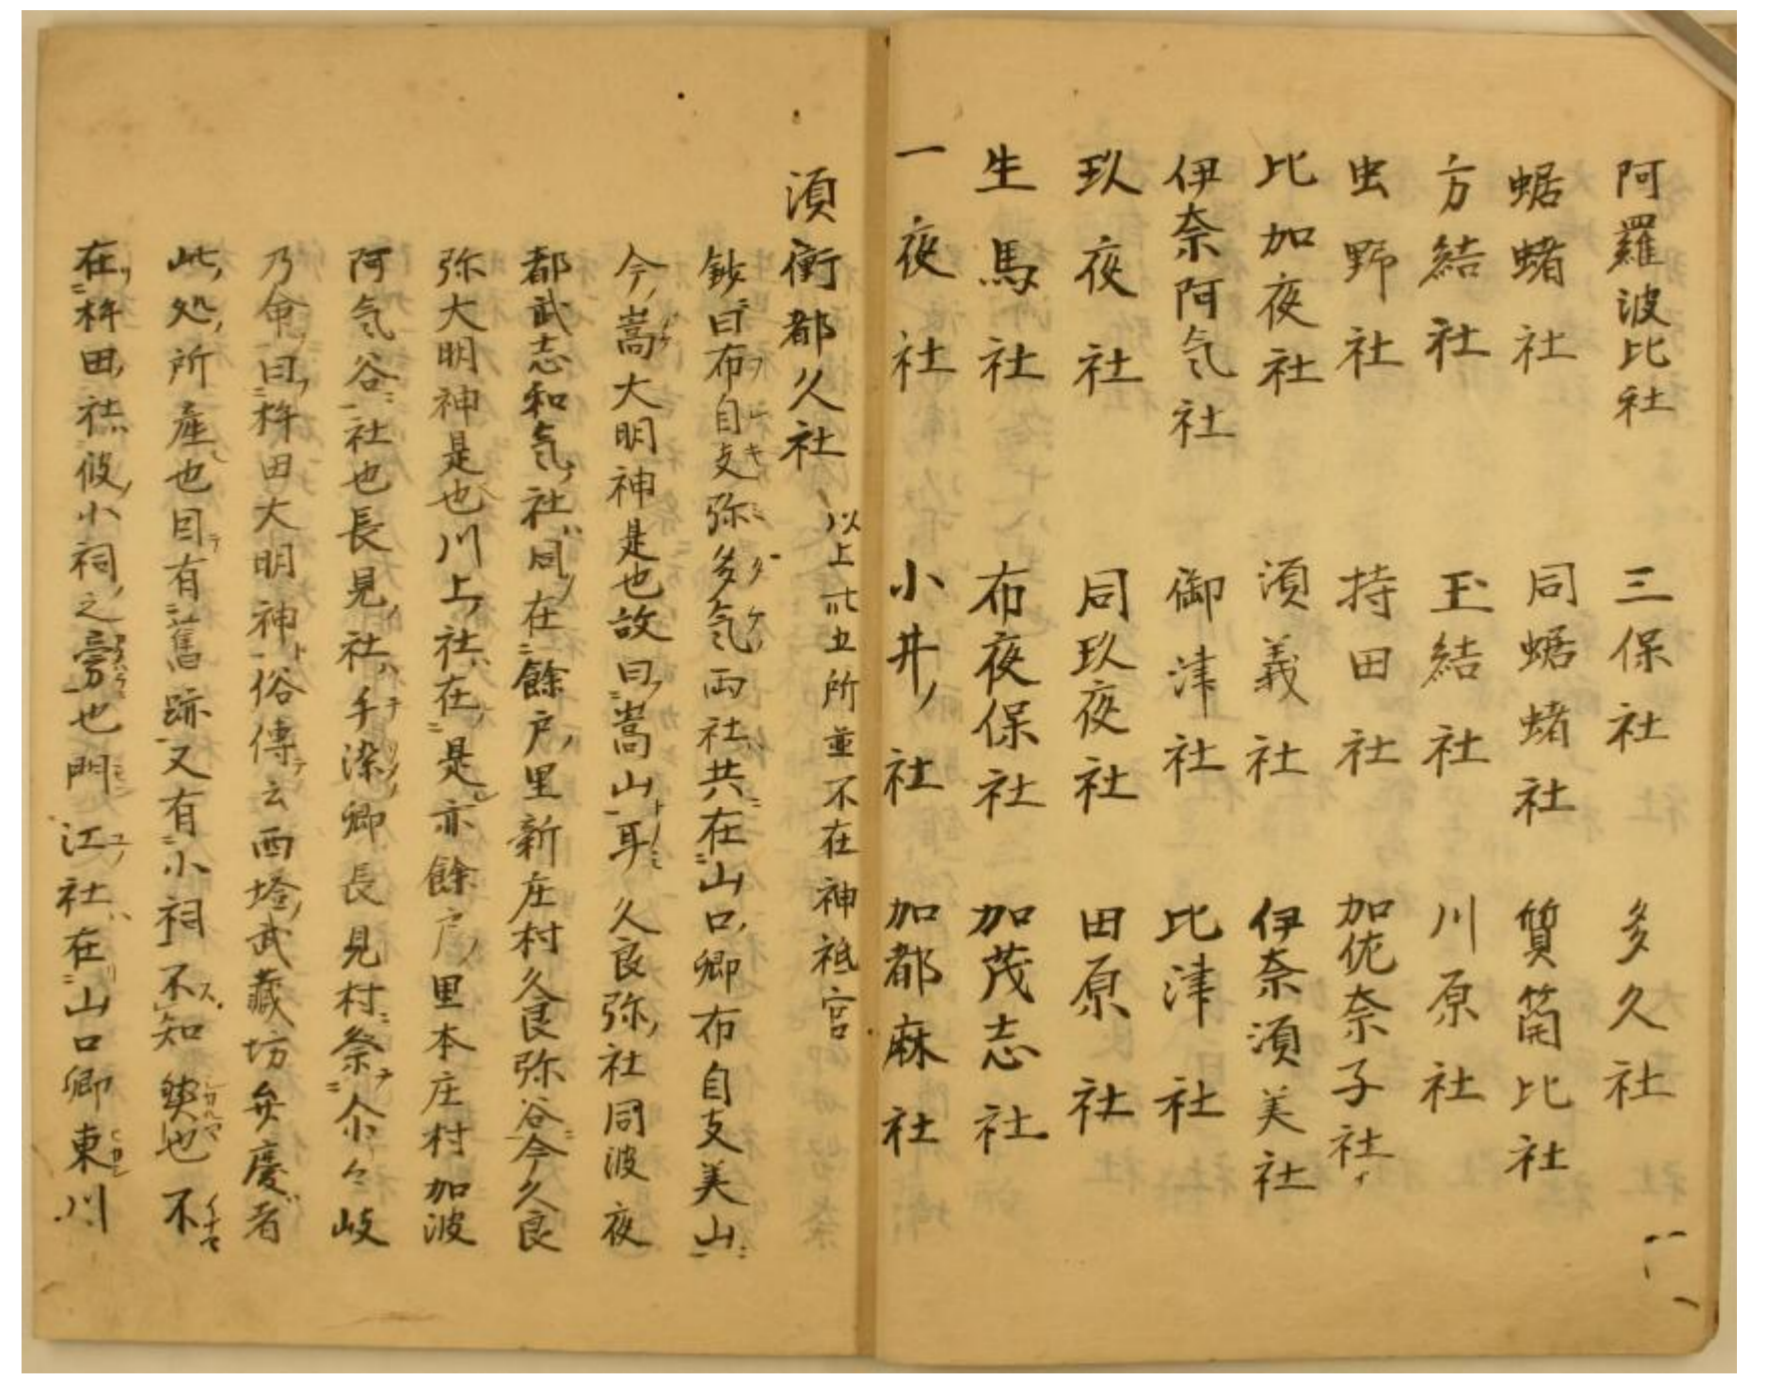 阿羅波比社 三保社 多久社
蜛蝫社 同蜛蝫社 質簡比社
方結社 玉結社 川原社
虫野社 持田社 加佐奈子社
比加夜社 須義社 伊奈須美社
伊奈阿気社 御津社 比津社
玖夜社 同玖夜社 田原社
生馬社 布夜保社 加茂志社
一夜社 小井ノ社 加都麻社
須衛都久社 以上卅五所並不在神祇官
鈔曰布自支弥多気両社共在山口卿布自支美山
今嵩大明神是也故曰嵩山耳久良弥社同波夜
都武志和気社同在餘戸里新庄村久良弥谷今久良
弥大明神是也川上社在是亦餘戸里本庄村加波
阿気谷社也長見社手染卿長見村祭尒々岐
乃命曰杵田大明神俗傳云西塔武蔵坊弁慶者
此処所産也因有舊跡又有小祠不知然也不
在杵田社彼小祠之旁也門江社在山口卿東川